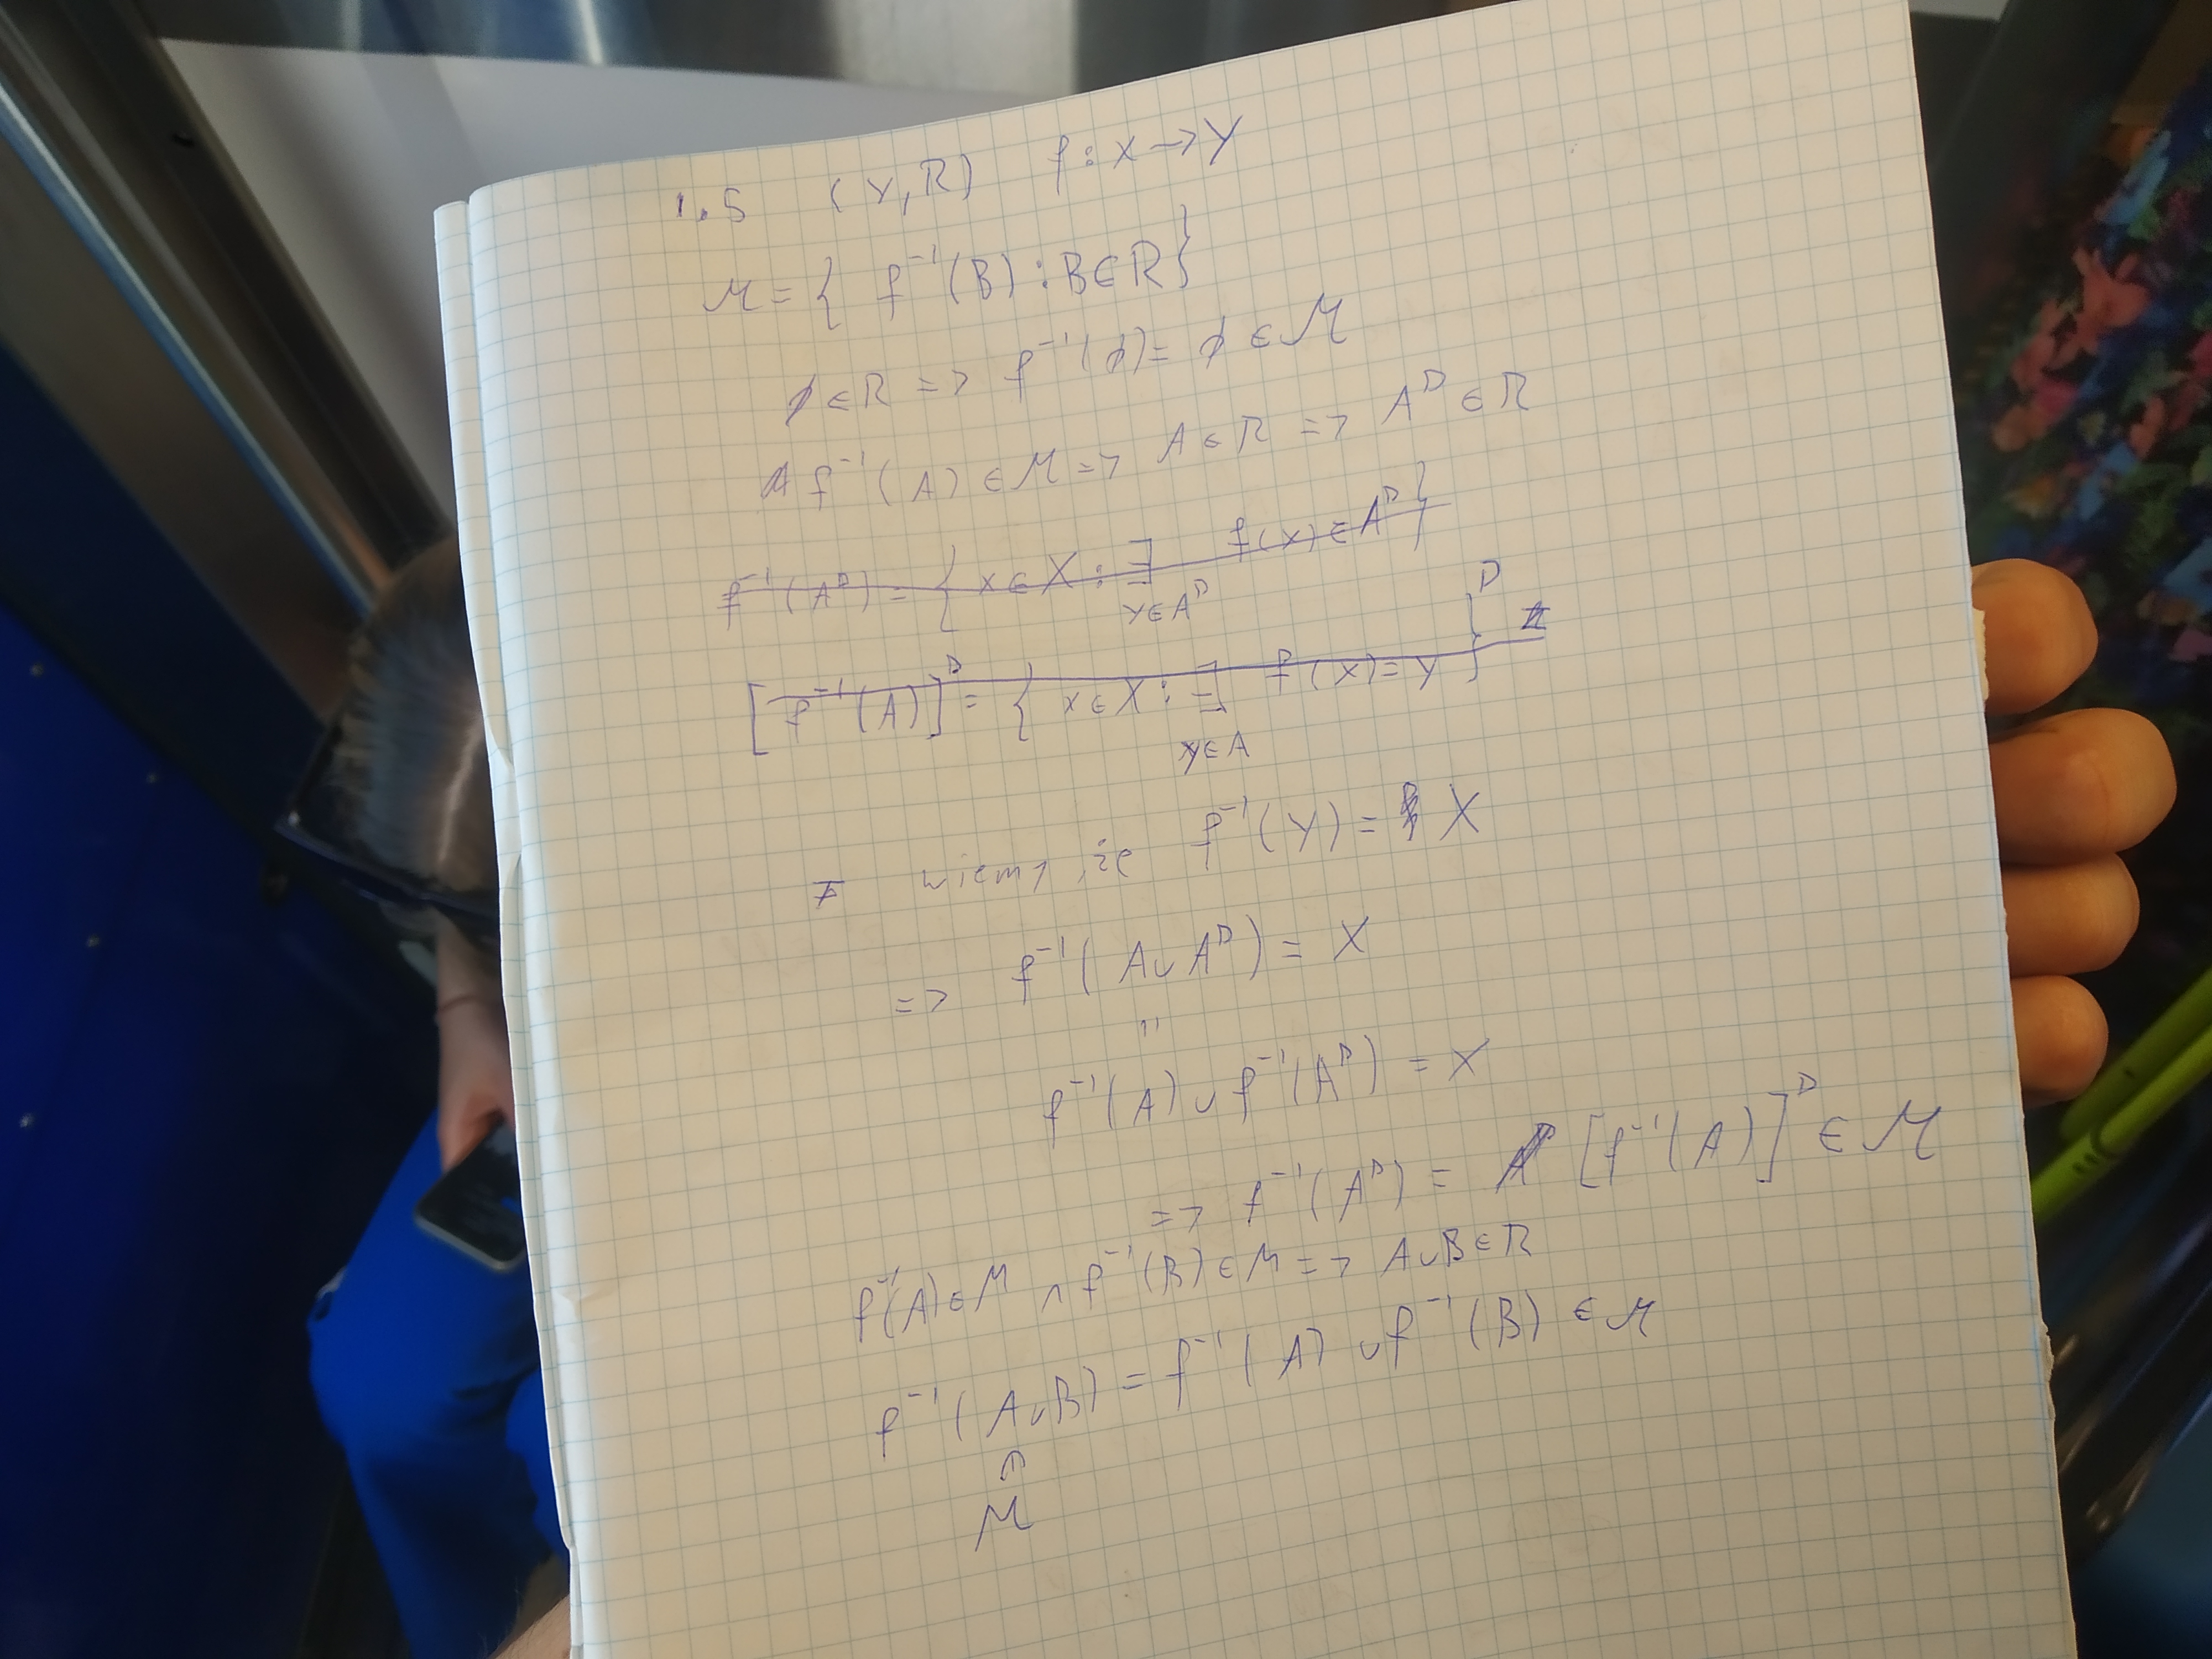 1.5 (Y, R) f : X → Y
M = { f⁻¹(B) : B ∈ R }
∅ ∈ R => f⁻¹(∅) = ∅ ∈ M
f⁻¹(A) ∈ M => A ∈ R => Aᴰ ∈ R
f⁻¹(Aᴰ) = { x ∈ X : ∃ f(x) ∈ Aᴰ }
y ∈ Aᴰ
[f⁻¹(A)]ᴰ = { x ∈ X : ∃ f(x) = y }ᴰ
y ∈ A
wiemy, że f⁻¹(Y) = X
=> f⁻¹(A ∪ Aᴰ) = X
"
f⁻¹(A) ∪ f⁻¹(Aᴰ) = X
=> f⁻¹(Aᴰ) = [f⁻¹(A)]ᴰ ∈ M
f⁻¹(A) ∈ M ∧ f⁻¹(B) ∈ M => A ∪ B ∈ R
f⁻¹(A ∪ B) = f⁻¹(A) ∪ f⁻¹(B) ∈ M
∩
M